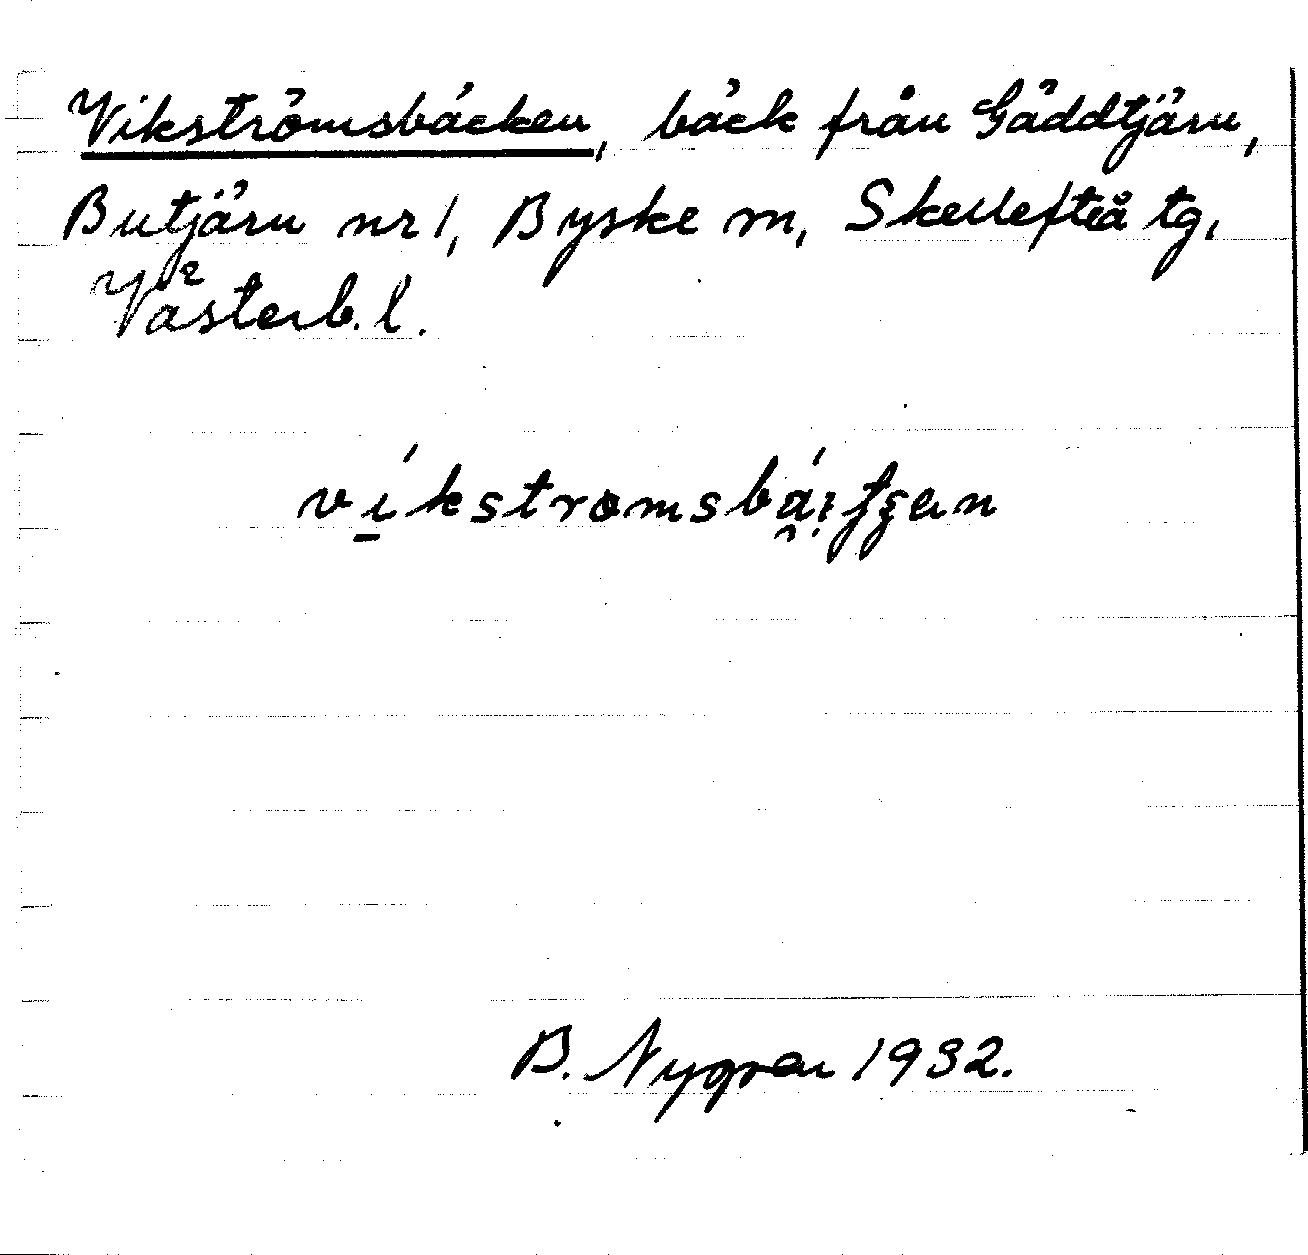 Vikströmsbäcken, bäck från Gäddtjärn,
Butjärn nr 1, Byske m, Skellefteå tg,
Västerb. l.
B. Nygren 1932.